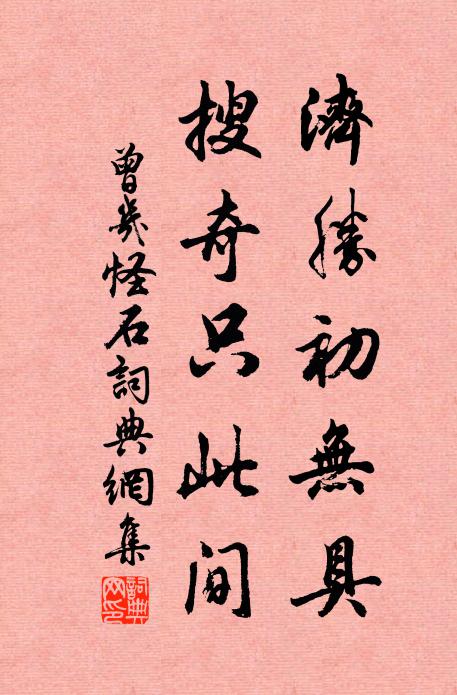 濟勝初無具
搜奇只此间
曾幾怪石詞典網集
詞典
网印